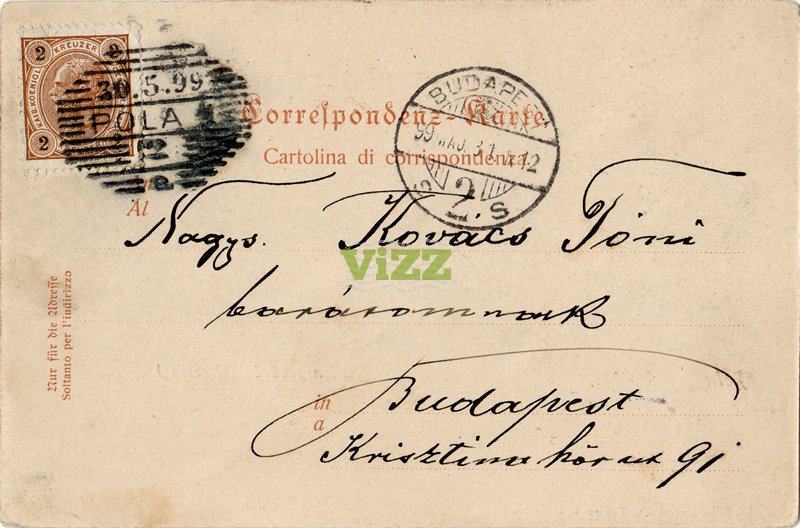 2 KREUZER 2
KAIS. KOENIGL.
2 2
30.5.99
POLA 1
Correspondenz-Karte
Cartolina di corrispondenza
BUDAPEST
99 MAJ. 31
2. S
An
Al
Nagys. Kovács Tóni
barátomnak
in
a
Budapest
Krisztina körut 91
Nur für die Adresse
Soltanto per l'indirizzo
ViZZ